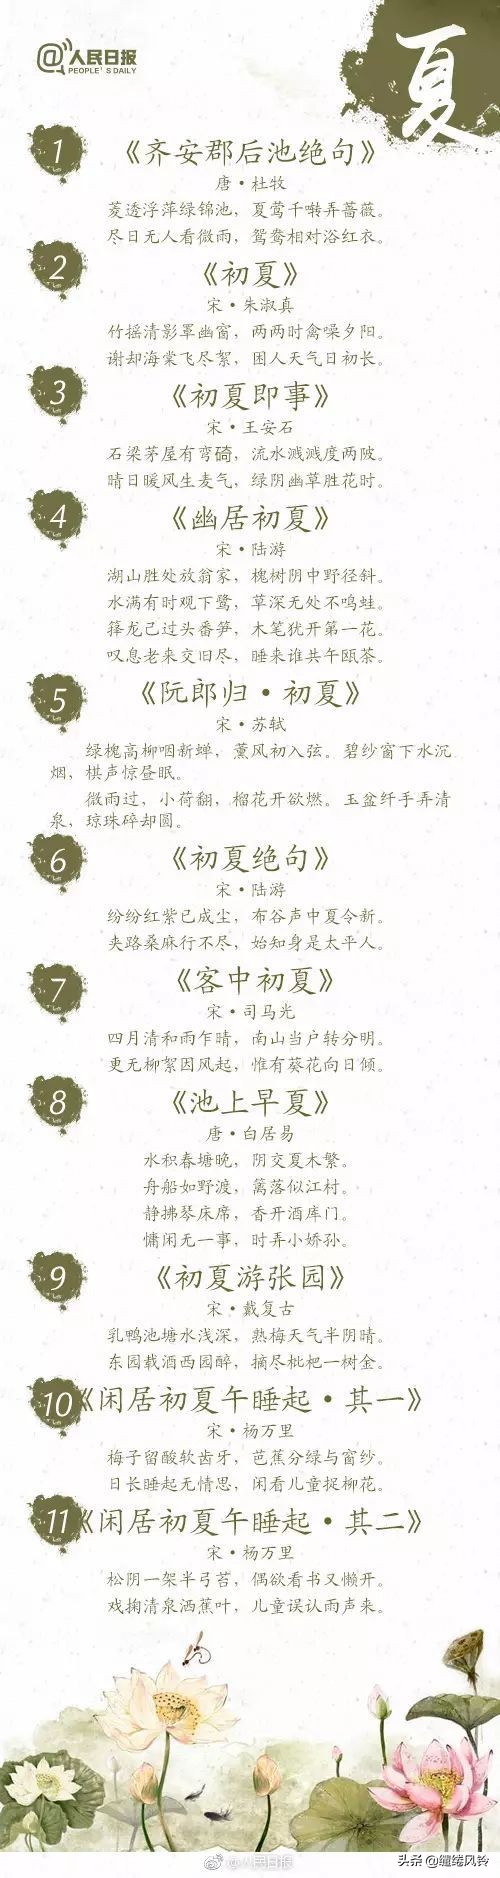 @人民日报
PEOPLE'S DAILY
夏
1
《齐安郡后池绝句》
唐·杜牧
菱透浮萍绿锦池，夏莺千啭弄蔷薇。
尽日无人看微雨，鸳鸯相对浴红衣。
2
《初夏》
宋·朱淑真
竹摇清影罩幽窗，两两时禽噪夕阳。
谢却海棠飞尽絮，困人天气日初长。
3
《初夏即事》
宋·王安石
石梁茅屋有弯碕，流水溅溅度两陂。
晴日暖风生麦气，绿阴幽草胜花时。
4
《幽居初夏》
宋·陆游
湖山胜处放翁家，槐树阴中野径斜。
水满有时观下鹭，草深无处不鸣蛙。
箨龙已过头番笋，木笔犹开第一花。
叹息老来交旧尽，睡来谁共午瓯茶。
5
《阮郎归·初夏》
宋·苏轼
绿槐高柳咽新蝉，薰风初入弦。碧纱窗下水沉
烟，棋声惊昼眠。
微雨过，小荷翻，榴花开欲燃。玉盆纤手弄清
泉，琼珠碎却圆。
6
《初夏绝句》
宋·陆游
纷纷红紫已成尘，布谷声中夏令新。
夹路桑麻行不尽，始知身是太平人。
7
《客中初夏》
宋·司马光
四月清和雨乍晴，南山当户转分明。
更无柳絮因风起，惟有葵花向日倾。
8
《池上早夏》
唐·白居易
水积春塘晚，阴交夏木繁。
舟船如野渡，篱落似江村。
静拂琴床席，香开酒库门。
慵闲无一事，时弄小娇孙。
9
《初夏游张园》
宋·戴复古
乳鸭池塘水浅深，熟梅天气半阴晴。
东园载酒西园醉，摘尽枇杷一树金。
10
《闲居初夏午睡起·其一》
宋·杨万里
梅子留酸软齿牙，芭蕉分绿与窗纱。
日长睡起无情思，闲看儿童捉柳花。
11
《闲居初夏午睡起·其二》
宋·杨万里
松阴一架半弓苔，偶欲看书又懒开。
戏掬清泉洒蕉叶，儿童误认雨声来。
@人民日报
头条 @缱绻风铃